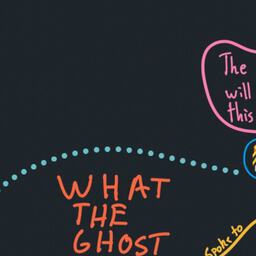 The
will
this
WHAT
THE
GHOST
Spoke to